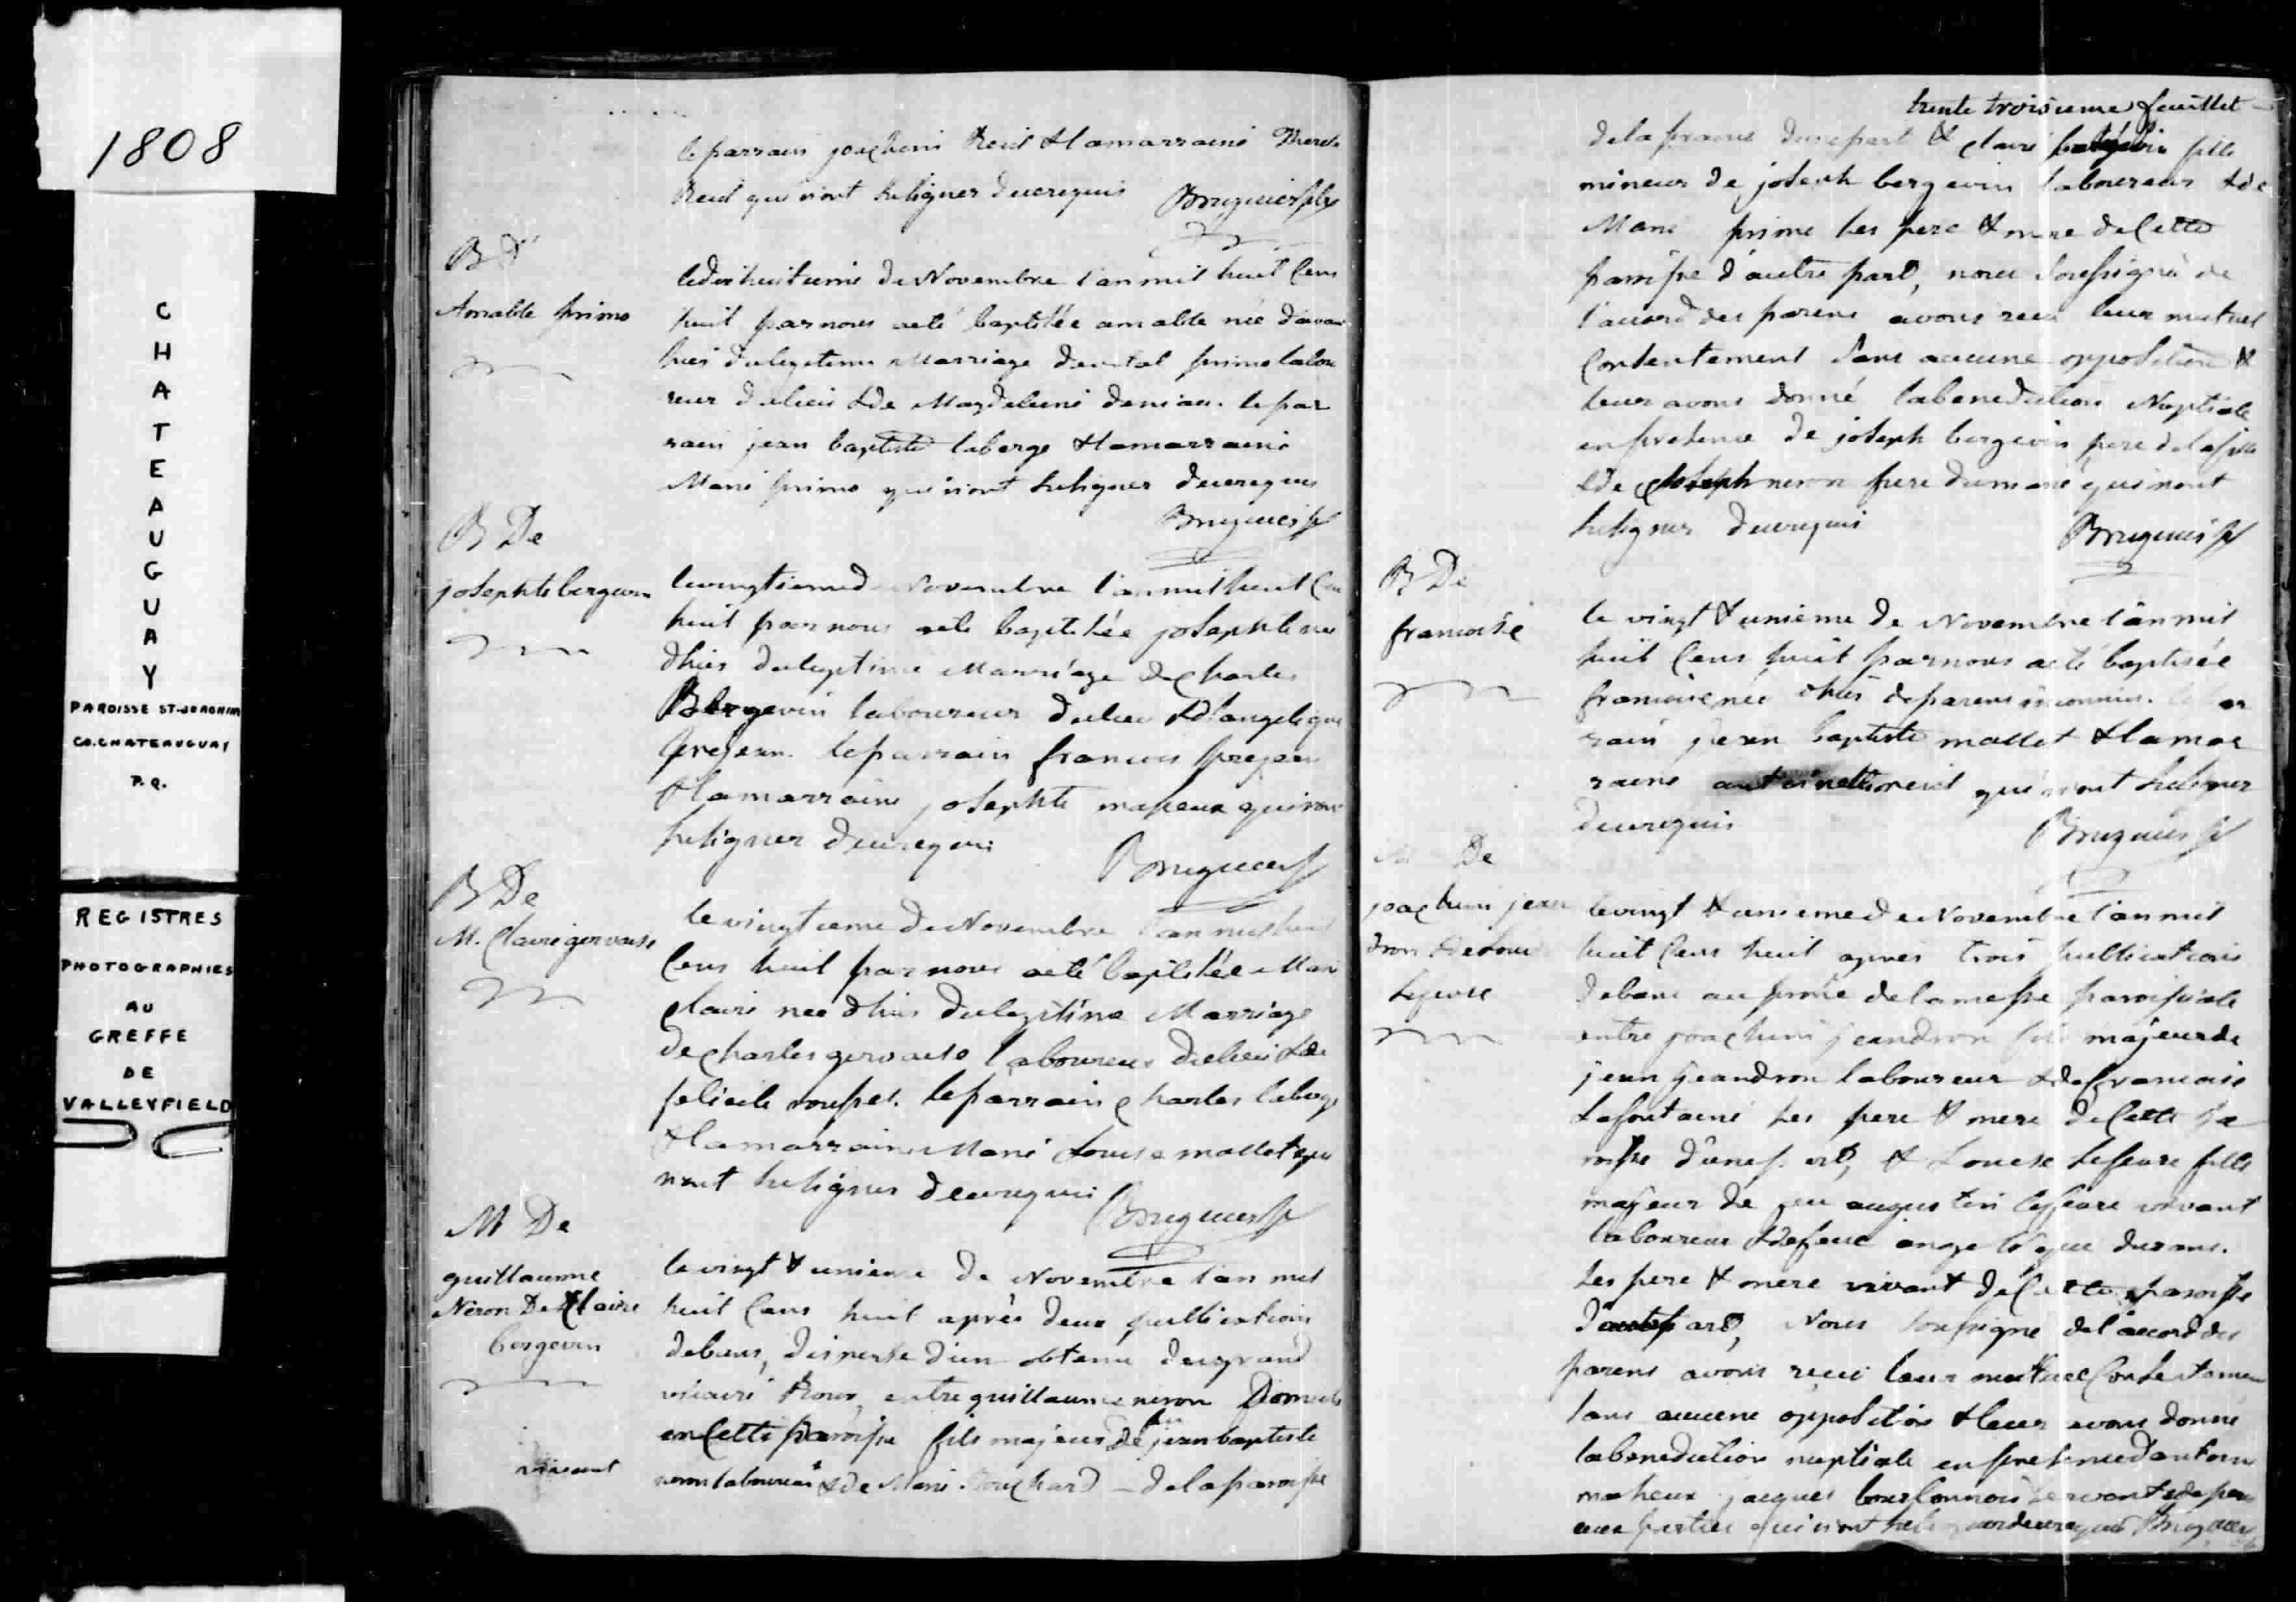 1808
CHATEAUGUAY
PAROISSE ST-JOACHIM
CO. CHATEAUGUAY
P.Q.
REGISTRES
PHOTOGRAPHIES
AU
GREFFE
DE
VALLEYFIELD
le parrain joachim Reid & la marraine
Reid qui n'ont sçu signer de ce requis Bruguier ptre
B D
Amable primo
le dix huitieme de Novembre l'an mil huit cens
huit par nous a eté baptisée amable née d'avant
hier du legitime Marriage de primo labou
reur du lieu & de Magdeleine daniau. le par
rain jean baptiste laberge & la marraine
Marie primo qui n'ont sçu signer de ce requis
Bruguier
B De
josephte bergevin
le vingtieme de Novembre l'an mil huit cens
huit par nous a eté baptisée josephte née
d'hier du legitime Marriage de charles
Bergevin laboureur du lieu & d'angelique
prejean. le parrain francois prejean
& la marraine josephte maheux qui n'ont
sçu signer de ce requis
Bruguier
B De
M. Claire gervaise
le vingtieme de Novembre l'an mil huit
cens huit par nous a eté baptisée Marie
claire née d'hier du legitime Marriage
de charles gervaise laboureur du lieu & de
felicité . le parrain charles laberge
& la marraine Marie Louise mallet qui
n'ont sçu signer de ce requis Bruguier
M De
guillaume
Neron De & Claire
bergevin
le vingt & unieme de Novembre l'an mil
huit cens huit après deux publications
de bans, dispense d'un obtenu du grand
vicaire Roux, entre guillaume neron Domicilié
en cette paroisse fils majeur de feu jean baptiste
neron laboureur & de Marie Bouchard de la paroisse
vivant
trente troisieme feuillet
de la d'une part & claire bergevin fille
mineure de joseph bergevin laboureur & de
Marie primo ses pere & mere de cette
paroisse d'autre part, nous soussigné de
l'accord des parens avons reçu leur mutuel
consentement sans aucune opposition &
leur avons donné la benediction Nuptiale
en presence de joseph bergevin pere de la fille
& de joseph neron frere du marié qui n'ont
sçu signer de ce requis Bruguier
B De
francoise
le vingt & unieme de Novembre l'an mil
huit cens huit par nous a eté baptisée
francoise née d'hier de parens inconnus. le par
rain jean baptiste mallet & la mar
raine reid qui n'ont sçu signer
de ce requis Bruguier
M De
joachim jean
dron & de Louise
lefevre
le vingt & unieme de Novembre l'an mil
huit cens huit après trois publications
de bans au prône de la messe paroissiale
entre joachim jeandron fils majeur de
jean jeandron laboureur & de francoise
Lafontaine ses pere & mere de cette pa
roisse d'une part, & Louise lefevre fille
majeur de feu augustin lefevre vivant
laboureur & de feue angelique
ses pere & mere vivant de cette paroisse
d'autre part, Nous soussigné de l'accord des
parens avons reçu leur mutuel consentement
sans aucune opposition & leur avons donné
la benediction nuptiale en presence d'antoine
maheux jacques bourbonnois servant de pere
aux parties qui n'ont sçu signer de ce requis Bruguier